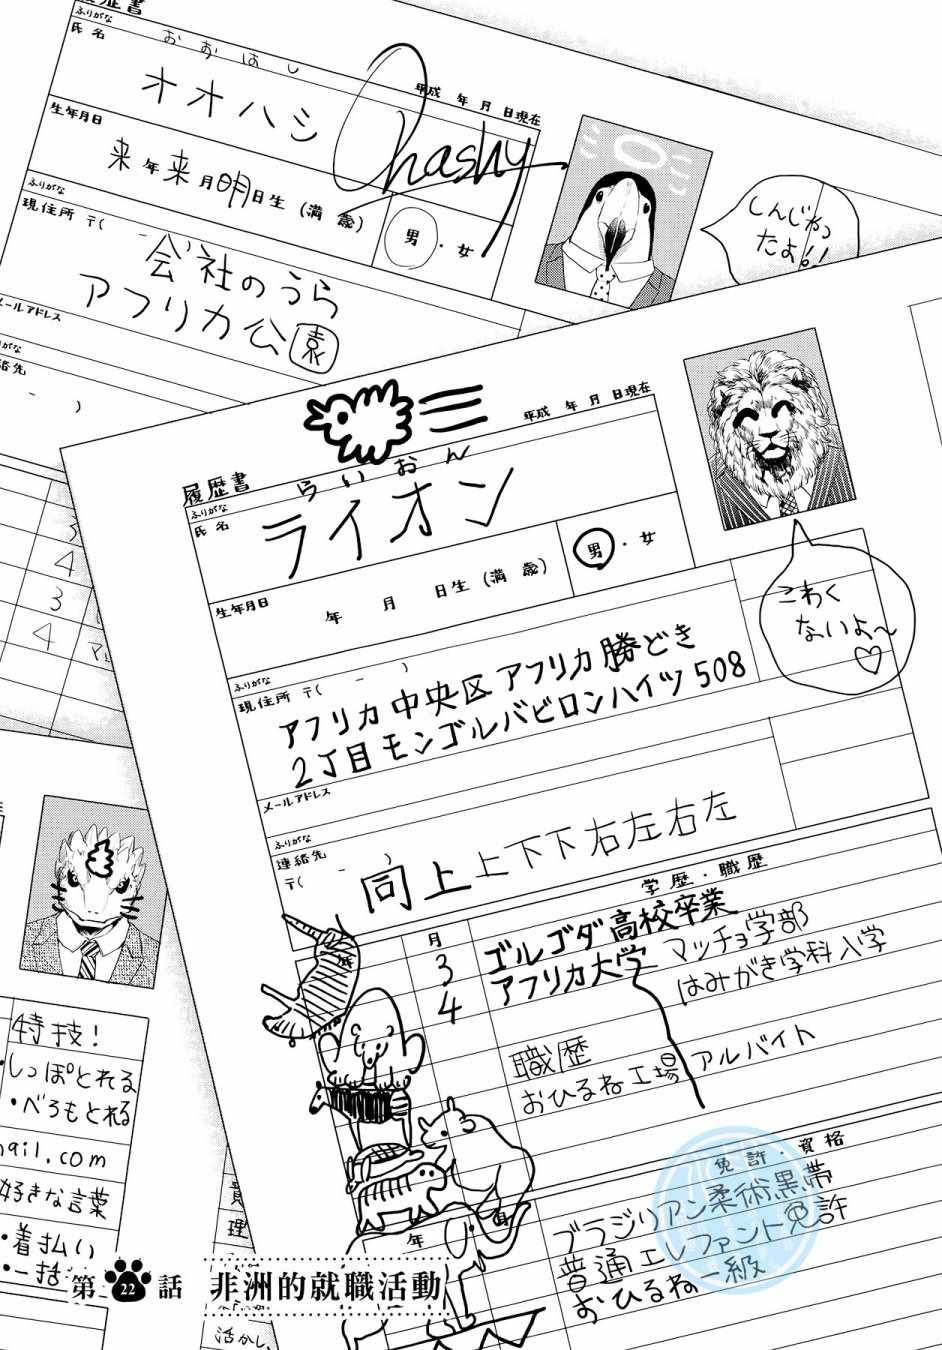 履歴書
ふりがな
おおはし
氏名
オオハシ
Ohashy
平成 年 月 日現在
生年月日
来年来月明日生(満 歳)
男・女
しんじゃっ
たよ!!
ふりがな
現住所 〒( - )
会社のうら
アフリカ公園
メールアドレス
ふりがな
連絡先
( - )
3
4
3
4
履歴書
平成 年 月 日現在
ふりがな
らいおん
氏名
ライオン
生年月日
年 月 日生(満 歳)
男・女
こわく
ないよ〜♡
ふりがな
現住所 〒( - )
アフリカ中央区アフリカ勝どき
2丁目モンゴルバビロンハイツ508
メールアドレス
ふりがな
連絡先
〒( - )
同上上下下右左右左
学歴・職歴
月
3
ゴルゴダ高校卒業
4
アフリカ大学 マッチョ学部
はみがき学科入学
職歴
おひるね工場 アルバイト
年
月
免許・資格
ブラジリアン柔術黒帯
普通エレファント免許
おひるね一級
特技!
・しっぽとれる
・べろもとれる
ail.com
好きな言葉
・着払い
・一括
理
活かし
第22話 非洲的就職活動